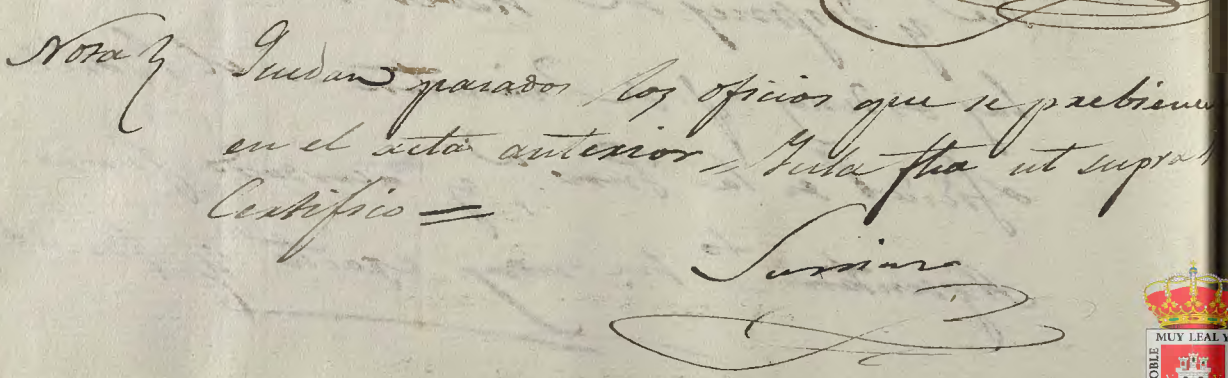 Nota
Quedan pasados los oficios que se prebienen
en el acta anterior = Yecla fha ut supra
Certifico =
MUY LEAL Y
OBLE